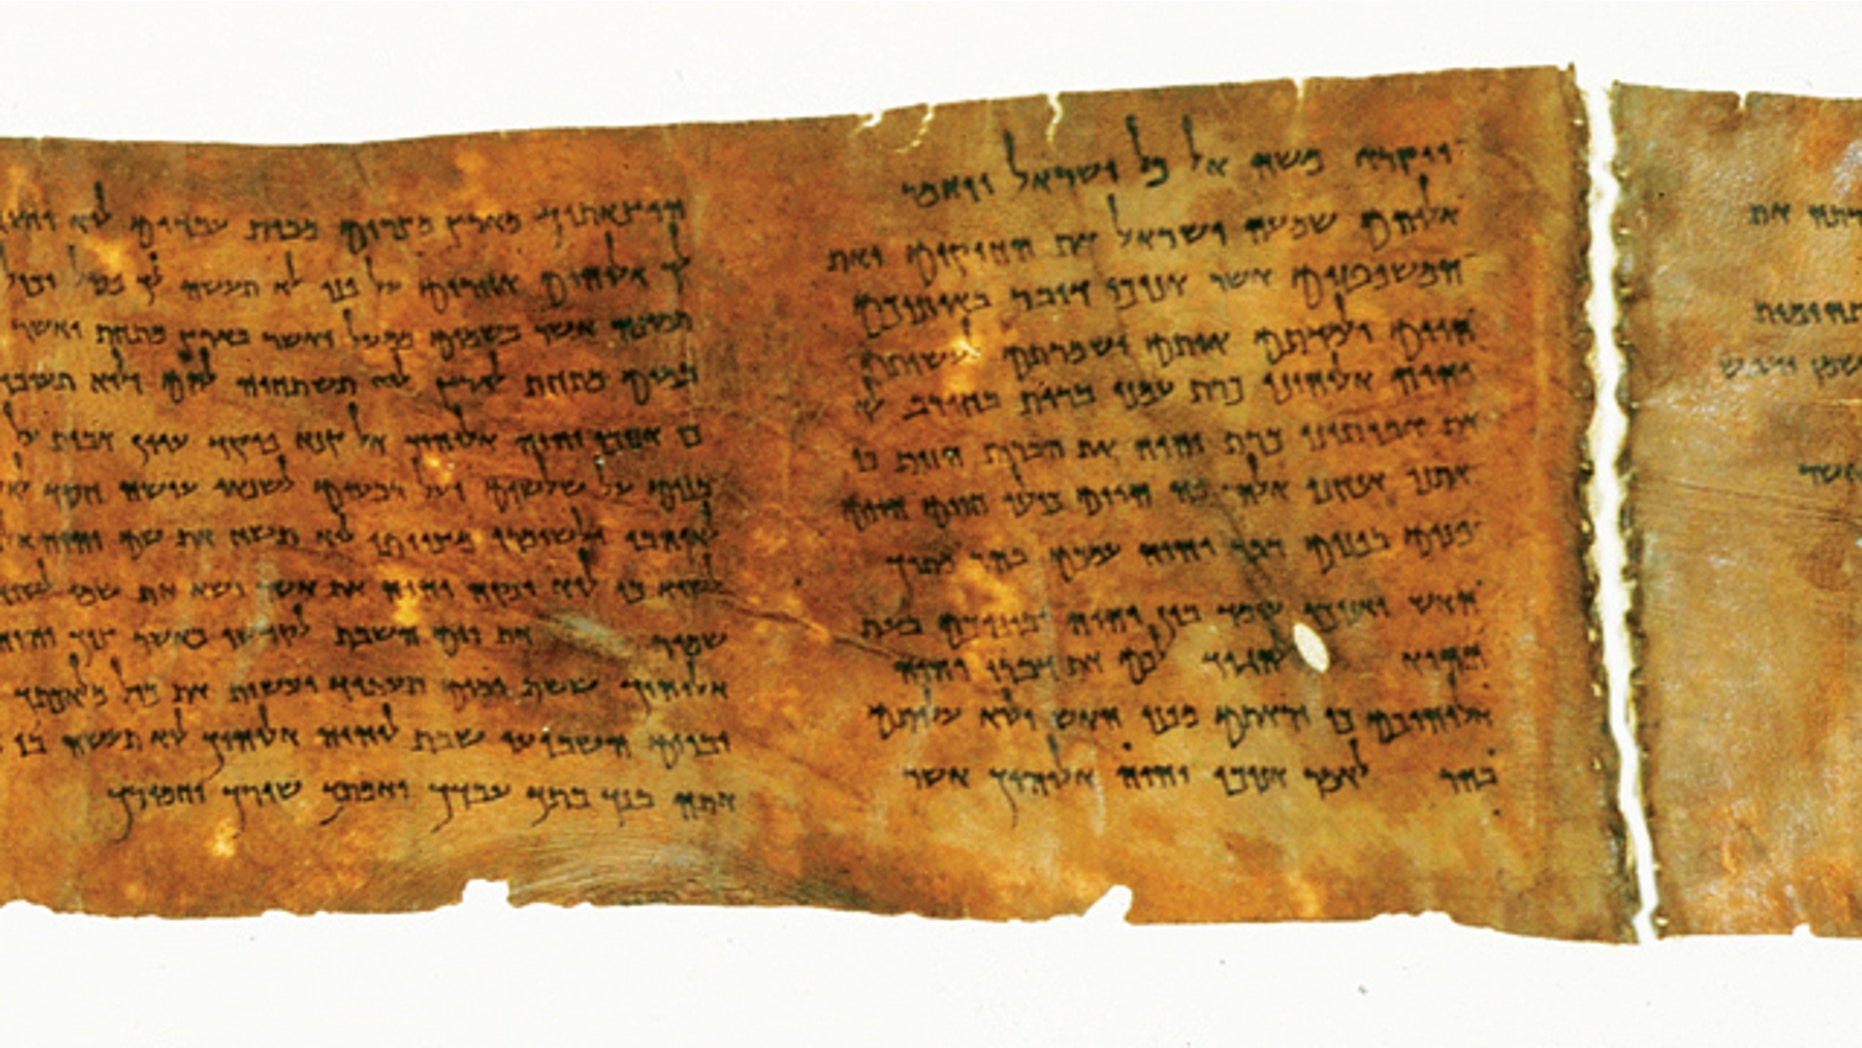 את
אשר
ויקרא משה אל כל ישראל ויאמר
אליהם שמעה ישראל את החוקים ואת
המשפטים אשר אנוכי דובר באוזניכם
היום ולמדתם אותם ושמרתם לעשותם
יהוה אלוהינו כרת עמנו ברית בחורב לא
את אבותינו כרת יהוה את הברית הזות כי
אתנו אנחנו אלה פה היום כולנו חיים היום
פנים בפנים דבר יהוה עמכם בהר מתוך
האש ואנוכי עומד בין יהוה וביניכם בעת
ההיא להגיד לכם את דברי יהוה
אלוהיכם כי יראתם מפני האש ולא עליתם
בהר לאמר אנוכי יהוה אלוהיך אשר
הוצאתיך מארץ מצרים מבית עבדים לוא יהיה
לך אלוהים אחרים על פני לא תעשה לך פסל וכול
תמונה אשר בשמים ממעל ואשר בארץ מתחת ואשר
במים מתחת לארץ לא תשתחוה להם ולוא
כי אנוכי יהוה אלוהיך אל קנא פוקד עוון אבות על
בנים על שלשים ועל רבעים לשנאי עושה חסד
לאוהבי ולשומרי מצוותי לא תשא את שם יהוה
לשוא כי לוא ינקה יהוה את אשר ישא את שמו לשוא
שמור את יום השבת לקדשו כאשר צוך יהוה
אלוהיך ששת ימים תעבוד ועשית את כול מלאכתך
וביום השביעי שבת ליהוה אלוהיך לא תעשה בו
אתה בנך בתך עבדך ואמתך שורך וחמורך